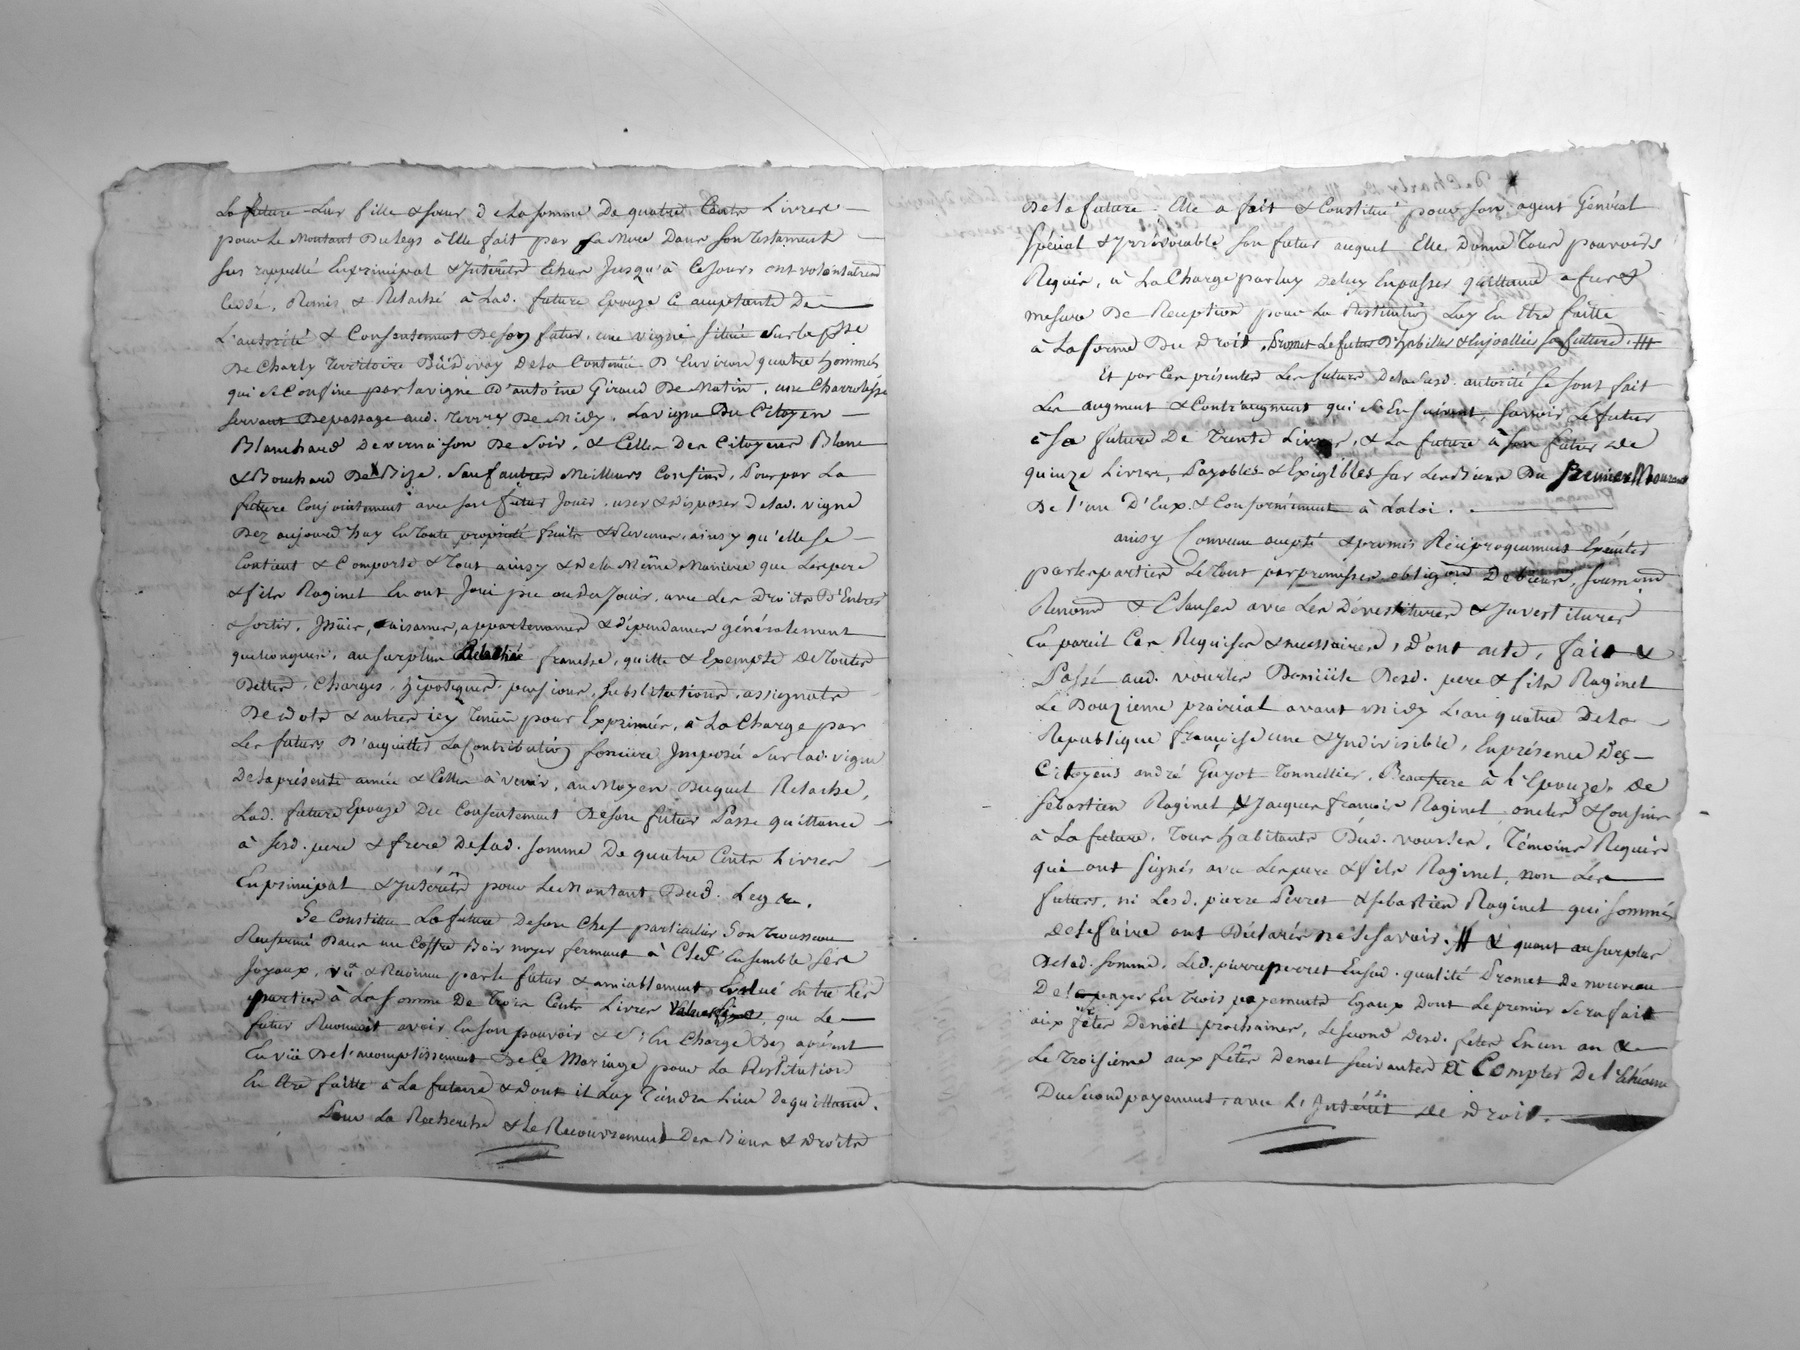 La future leur fille & sœur de la somme De quatre Cents Livres
pour Le Montant Du legs à Elle fait par sa Mere Dans son testament
sus rappellé En principal & Intérêts Echus Jusqu'à Ce Jour, ont volontairemt
Cédé, Remis & Relaché à Lad. future Epouze ce acceptante De
L'autorité & Consentement De son futur, une vigne située sur la psse
De Charly territoire De la Contenüe D'Environ quatre hommées
qui se Confine par la vigne D'antoine Giraud De Matin, une Charrolésse
servant De passage aud. De Midy, La vigne Du Citoyen
Blanchard De vernaison De soir, & Celles Des Citoyens Blanc
& Bouchard De Bize, sauf autres Meilleurs Confins, Pour par La
future Conjointement avec son futur Jouir, user & disposer de lad. vigne
Dez aujourd'huy En toute propriété fruits & Revenus, ainsy qu'elle se
Contient & Comporte & tout ainsy & de la Même Maniere que Les pere
& fils Raginet En ont Joui pu ou du Jouir, avec Les Droits D'Entrés
& sortir, aisances, appartenances & dépendances généralement
quelconques, au surplus Relachée franche, quitte & Exempte De toutes
Dettes, Charges, hipoteques, pensions, substitutions, assignats
De dots & autres icy tenüe pour Exprimés, à La Charge par
Les futurs D'acquitter La Contribution fonciere Imposée sur lad. vigne
De la présente année & Celles à venir, au Moyen Duquel Relache,
Lad. future Epouze Du Consentement De son futur Passe quittance
à sesd. pere & frere De lad. somme De quatre Cents Livres
En principal & Intérêts pour Le Montant Dud. Legs.
Se Constitue La future De son Chef particulier son trousseau
Renfermé Dans un Coffre Bois noyer fermant à Clef Ensemble ses
Joyaux, vu & Reconnu par le futur & amiablement Evalué Entre Les
parties à La somme De trois Cents Livres, que Le
futur Reconnoit avoir En son pouvoir & s'En Charge Dez aprésent
En vüe De l'accomplissement De Ce Mariage pour La Restitution
En être faitte à La future & dont il Luy tiendra Lieu De quittance.
Pour La Recherche & Le Recouvrement Des Biens & Droits
De la future, Elle a fait & Constitué pour son agent Général
spécial & Irrévocable son futur auquel Elle Donne tous pouvoirs
Requis, à La Charge par luy De luy En passer quittance a fur &
mesure De Reception pour La Restitution Luy En être faitte
à La forme Du Droit, Promet Le futur D'habiller & Enjoailler sa future.
Et par Ces présentes Les futurs De la susd. autorité se sont fait
Les augment & Contr'augment qui s'En suivent savoir Le futur
à sa future De trente Livres, & La future à son futur de
quinze Livres, Payables & Exigibles sur Les Biens Du Premier Mourant
De l'un D'Eux & Conformément à La loi.
ainsy Convenu accepté & promis Réciproquement Exécuter
par les parties Le tout par promesses obligaons De Biens, soumons
Renons & Clauses avec Les Dévestitures & Investitures
En pareil Cas Requises & necessaires, D'ont acte, fait &
Passé aud. vourles Domicile Desd. pere & fils Raginet
Le Douzieme prairial avant midy L'an quatre De la
Republique françoise une & Indivisible, En présence Des
Citoyens andré Guyot tonnellier, Beaufrere à l'Epouze, De
sébastien Raginet & Jacques françois Raginet oncles & Cousins
à La future, tous habitants Dud. vourles, témoins Requis
qui ont signés avec Les pere & fils Raginet, non Les
futurs, ni Lesd. pierre Perret & sebastien Raginet qui sommés
de le faire ont Déclarés ne le savoir. & quant au surplus
De lad. somme, Led. pierre perret En sad. qualité Promet De nouveau
De la payer En trois payements Egaux Dont Le premier sera fait
aux fêtes De noël prochaines, Le second Desd. fetes En un an &
Le troisieme aux fêtes De noel suivantes à Compter De l'Echéance
Du second payement, avec L'Intérêt De Droit.